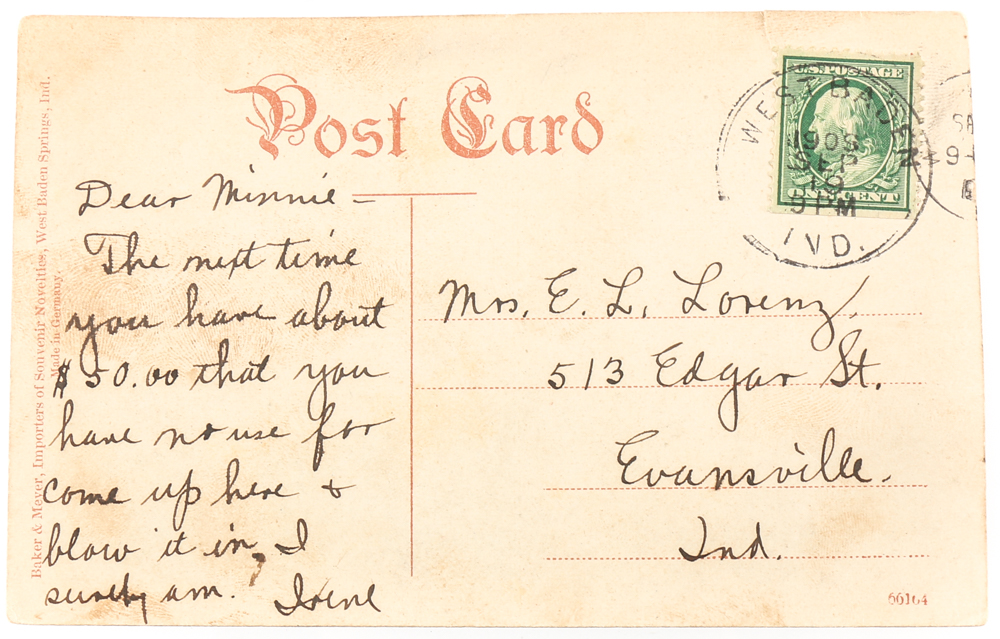 Post Card
U.S. POSTAGE
WEST BADEN
IND.
SEP
9 PM
Dear Minnie =
The next time
you have about
$50.00 that you
have no use for
come up here &
blow it in, I
surely am. Irene
Mrs. E. L. Lorenz,
513 Edgar St.
Evansville.
Ind.
Baker & Meyer, Importers of Souvenir Novelties, West Baden Springs, Ind.
Made in Germany.
66164